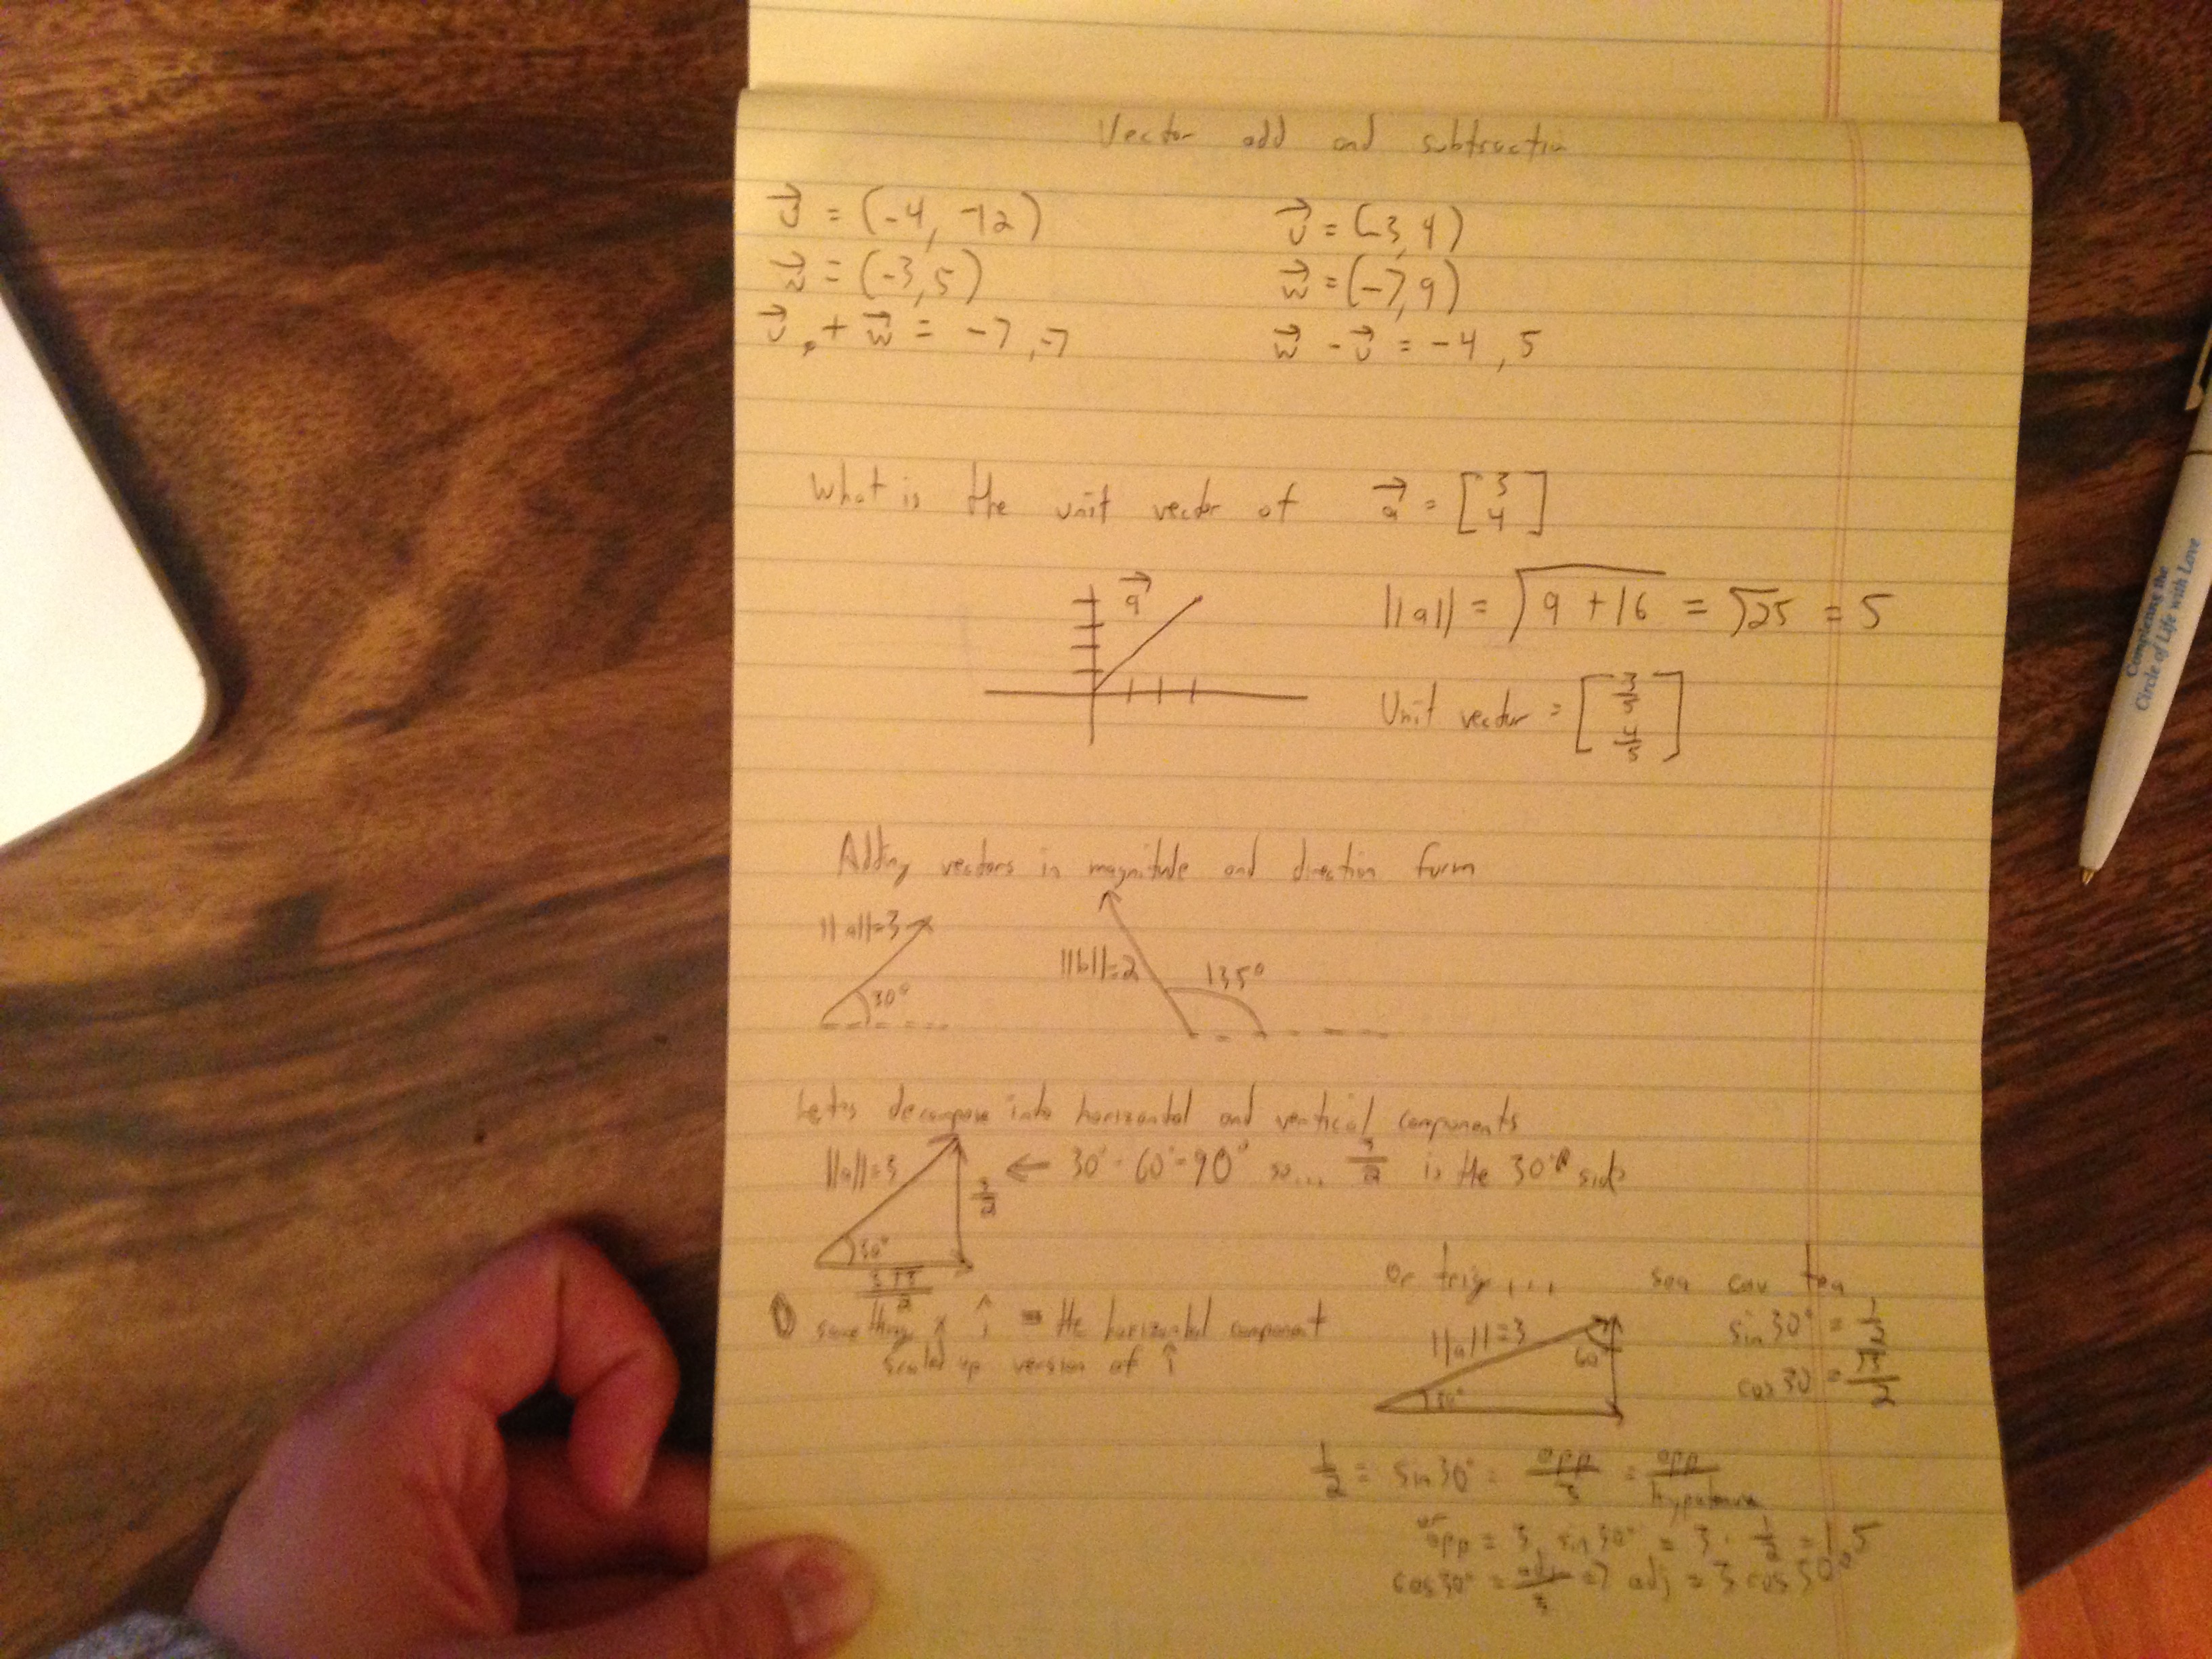 Completing the
Circle of Life with Love
Vector add and subtraction
v⃗ = (-4, -12)
w⃗ = (-3, 5)
v⃗ + w⃗ = -7, -7
v⃗ = (-3, 4)
w⃗ = (-7, 9)
w⃗ - v⃗ = -4, 5
What is the unit vector of a⃗ = [3 4]
a⃗
||a|| = √9 + 16 = √25 = 5
Unit vector = [3/5 4/5]
Adding vectors in magnitude and direction form
||a||=3
30°
||b||=2
135°
Lets decompose into horizontal and vertical components
||a||=3
← 30° - 60° - 90° so... 3/2 is the 30° side
3/2
30°
3√3/2
Or trig...
soh cah toa
the horizontal component
scaled up version of î
||a||=3
60°
30°
sin 30° = 1/2
cos 30° = √3/2
1/2 = sin 30° = opp/3 = opp/hypotenuse
or
opp = 3 sin 30° = 3 · 1/2 = 1.5
cos 30° = adj/3 adj = 3 cos 30°